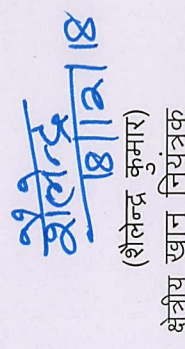 शैलेन्द्र
18/12/18
(शैलेन्द्र कुमार)
क्षेत्रीय खान नियंत्रक